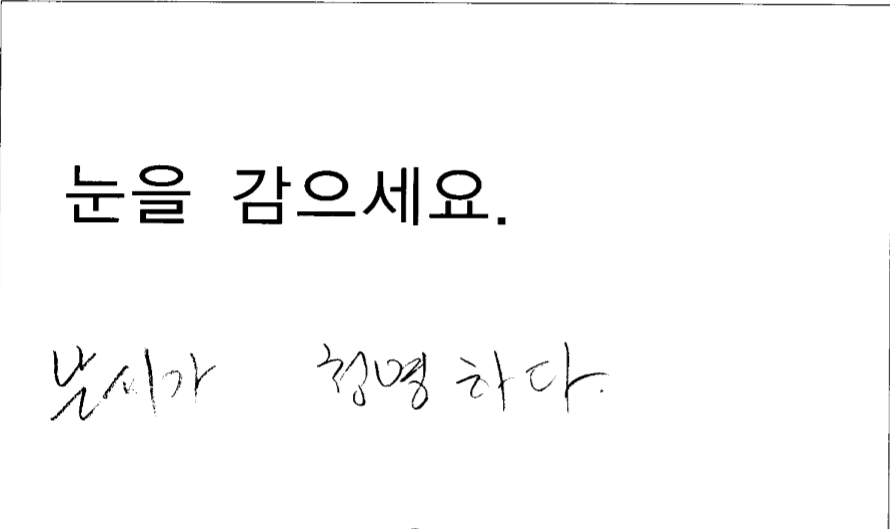 눈을 감으세요.
날씨가 청명하다.